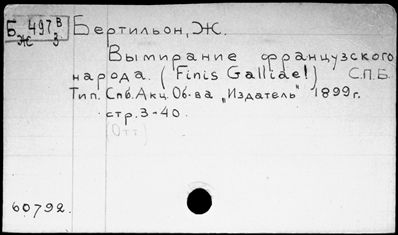 Б 497 В
Ж 3
Бертильон, Ж.
Вымирание французского
народа. (Finis Gallidel) С.П.Б.
Тип. Спб. Акц. Об-ва „Издатель" 1899 г.
стр. 3-40.
(Отт)
60792.